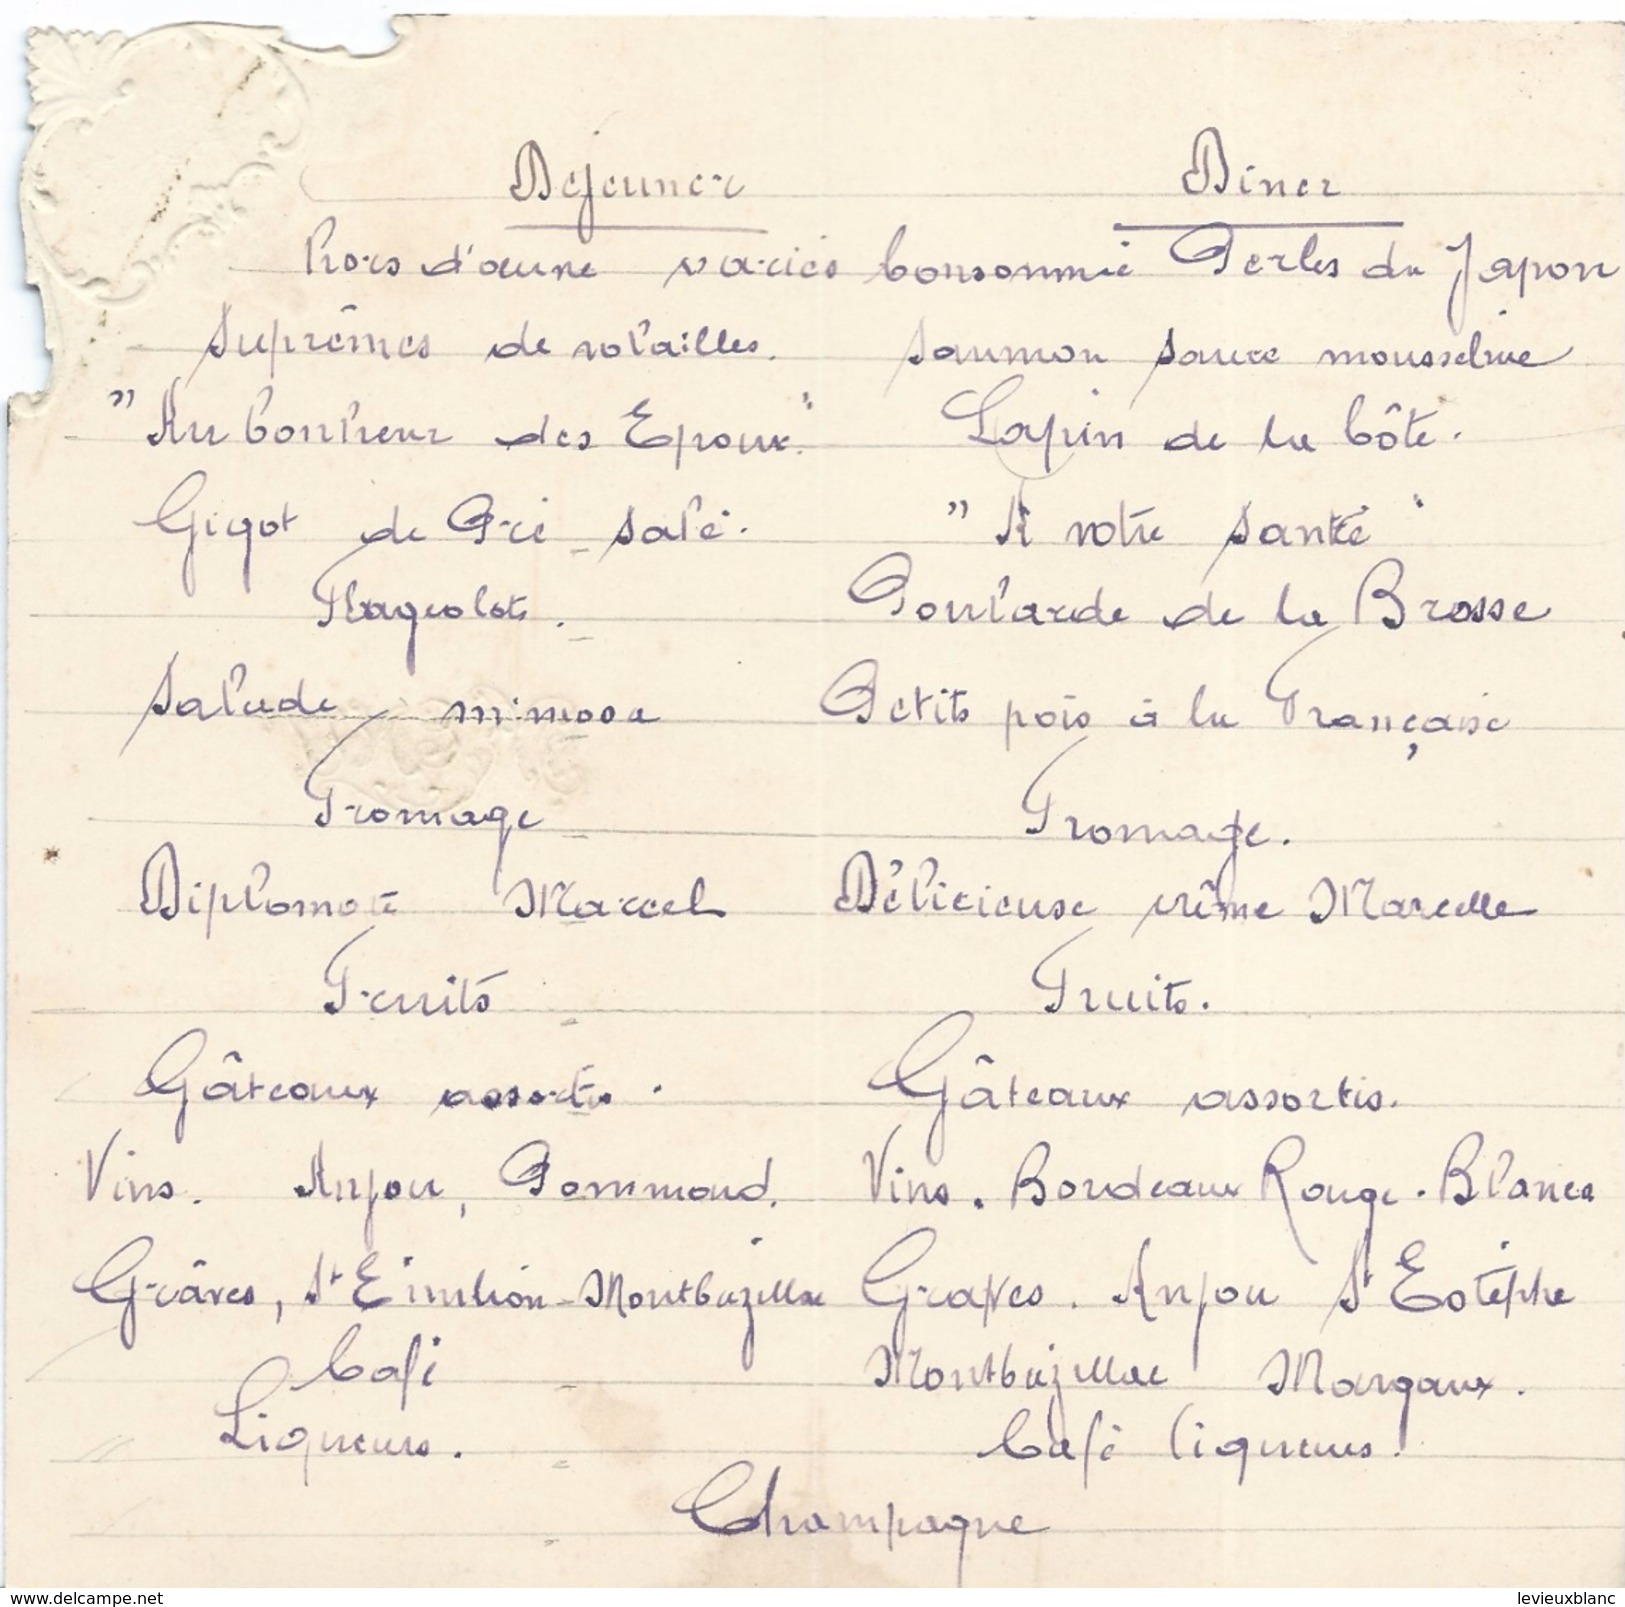 Dejeuner
Hors d'œuvre variés
Suprêmes de volailles.
"Au bonheur des Epoux"
Gigot de Pré salé.
Flageolets.
Salade mimosa
Fromage
Diplomate Marcel
Fruits
Gâteaux assortis.
Vins. Anjou, Pommard.
Grâves, St Emilion - Montbazillac
Café
Liqueurs.
Diner
Consommé Perles du Japon
Saumon sauce mousseline
Lapin de la Côte.
"A votre santé"
Poularde de la Brosse
Petits pois à la Française
Fromage.
Délicieuse crème Marcelle
Fruits.
Gâteaux assortis.
Vins. Bordeaux Rouge. Blanca
Graves. Anjou St Estéphe
Montbazillac Margaux.
Café liqueurs.
Champagne
www.delcampe.net
levieuxblanc